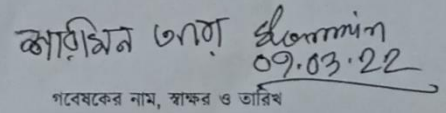 আরমিন তনয় Sharmin
09.03.22
গবেষকের নাম, স্বাক্ষর ও তারিখ